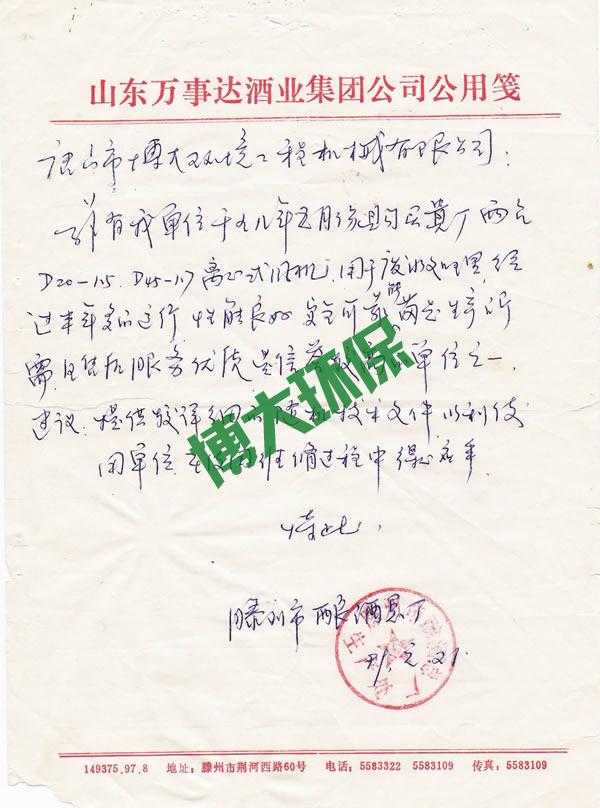 山东万事达酒业集团公司公用笺
唐山市博大环境工程机械有限公司：
兹有我单位于九八年五月份购贵厂两台
D20-15 D45-1.7 离心式风机，用于废水处理，经
过半年多的运行 性能良好 安全可靠 能满足生产所
需，且售后服务优质 是信誉较高的单位之一，
建议：提供较详细的随机技术文件 以利使
用单位 在使用维修过程中得心应手
特此，
滕州市酿酒总厂
博大环保
149375.97.8 地址：滕州市荆河西路60号 电话：5583322 5583109 传真：5583109